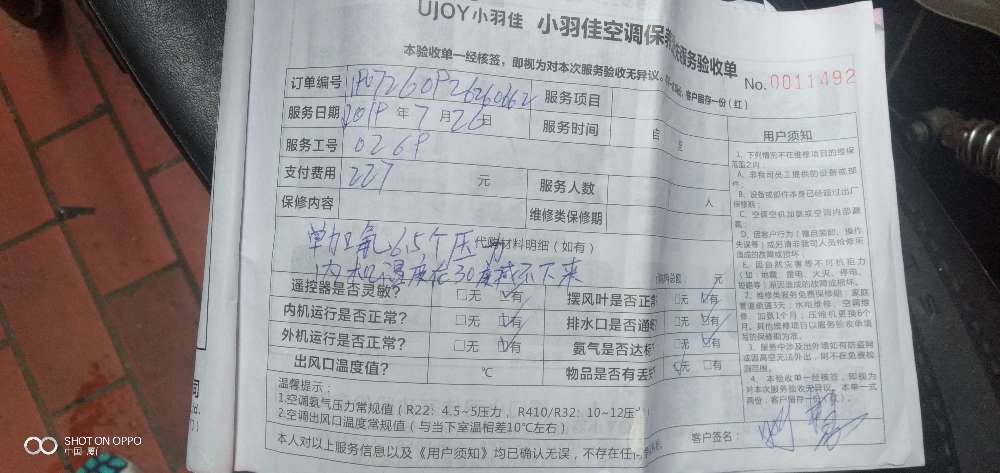 UJOY小羽佳 小羽佳空调保养服务验收单
本验收单一经核签，即视为对本次服务验收无异议。
客户留存一份（红）
No. 0011492
订单编号
服务项目
服务日期 2019年7月26日
服务时间 自 至
服务工号 0269
支付费用 227 元
服务人数 人
保修内容
维修类保修期
代购材料明细（如有）
元
单加氟6.5个压力
内机温度在30度减不下来
遥控器是否灵敏？ □无 ☑有
摆风叶是否正常 □无 ☑有
内机运行是否正常？ □无 ☑有
排水口是否通畅 □无 ☑有
外机运行是否正常？ □无 ☑有
氨气是否达标 □无 ☑有
出风口温度值？ ℃
物品是否有丢失 ☑无 □有
温馨提示：
1.空调氨气压力常规值（R22：4.5~5压力，R410/R32：10~12压
2.空调出风口温度常规值（与当下室温相差10℃左右）
本人对以上服务信息以及《用户须知》均已确认无误，不存在任
客户签名：
用户须知
1、下列情况不在维修项目的维保
范围之内：
A、非我司员工提供的设备或部
件；
B、设备或部件本身已经超过出厂
保修期；
C、空调空机加氨或空调内部漏
氨；
D、因客户行为（擅自装卸、操作
失误等）或另请非我司人员检修所
造成的故障或损坏
E、因自然灾害等不可抗拒力
（如：地震、雷电、火灾、停电、
短路等）原因造成的故障或损坏。
2、维修类服务免费保修期：家庭
管道疏通3天；水电维修、空调维
修、加氨1个月；压缩机更换6个
月。其他维修项目以服务验收单填
写的保修期为准。
3、服务中涉及出外墙如有防盗网
或因高空无法外出，则不在免费检
测范围。
4、本验收单一经核签，即视为
对本次服务验收无异议。本单一式
两份，客户留存一份（红）。
SHOT ON OPPO
中国·厦门